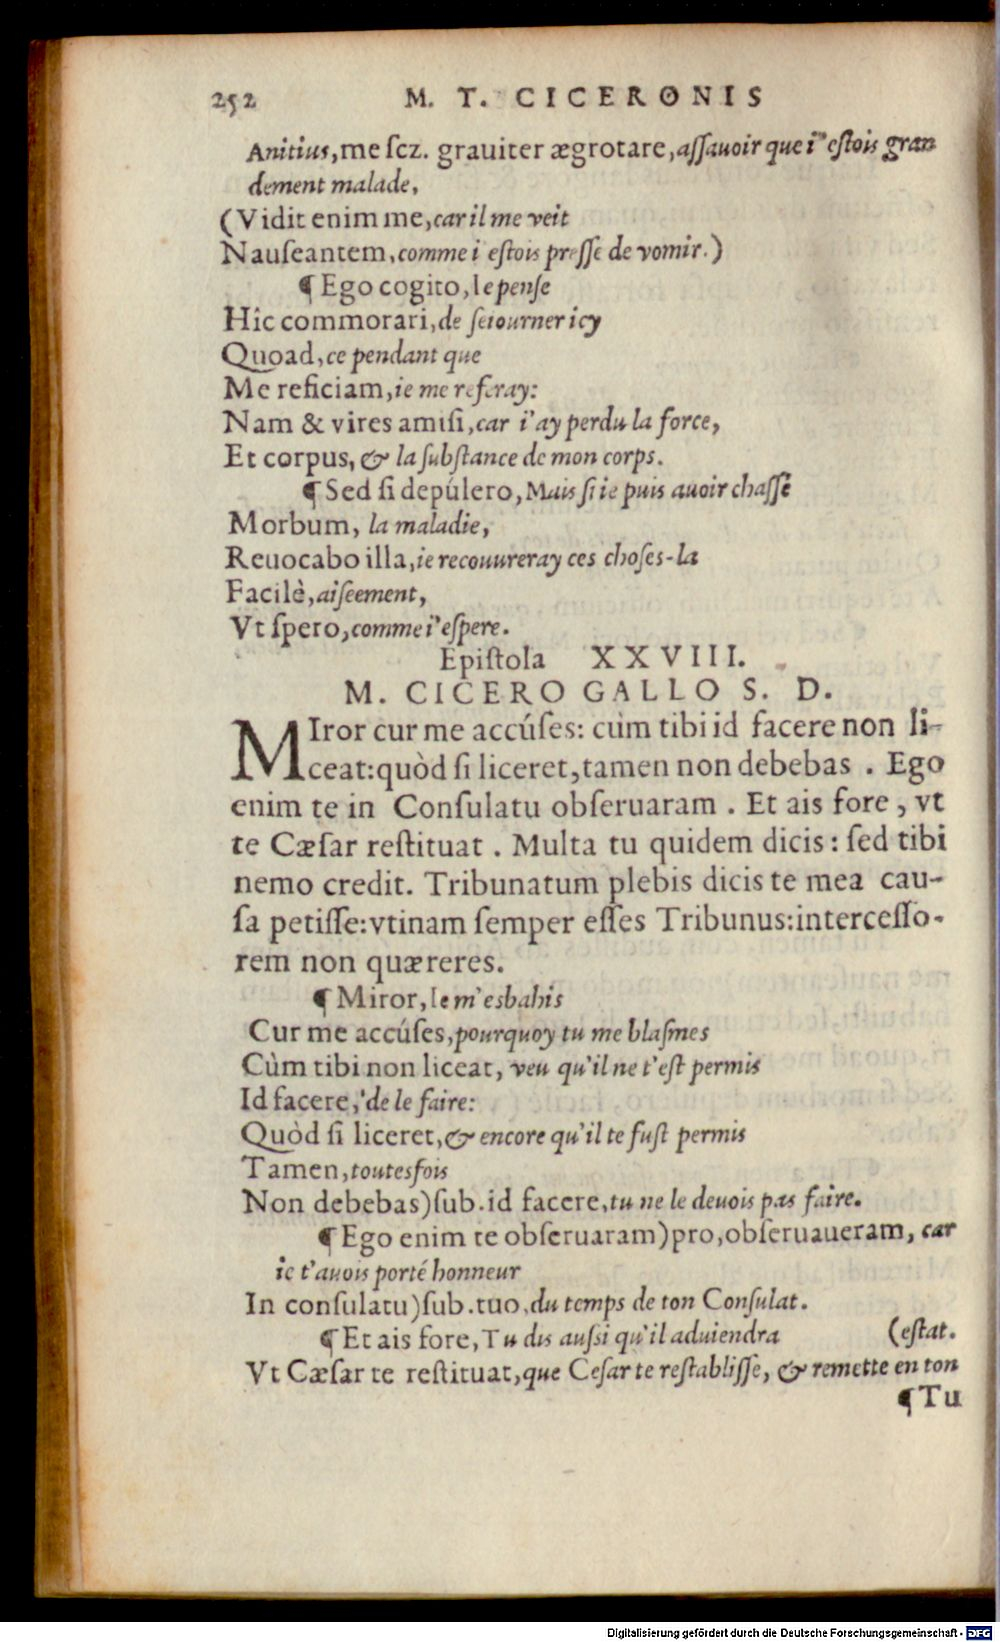 252 M. T. CICERONIS
Anitius, me scz. grauiter ægrotare, assauoir que i'estois gran
dement malade,
(Vidit enim me, car il me veit
Nauseantem, comme i estois presse de vomir.)
¶ Ego cogito, Ie pense
Hîc commorari, de seiourner icy
Quoad, ce pendant que
Me reficiam, ie me referay:
Nam & vires amisi, car i'ay perdu la force,
Et corpus, & la substance de mon corps.
¶ Sed si depúlero, Mais si ie puis auoir chassé
Morbum, la maladie,
Reuocabo illa, ie recouureray ces choses-la
Facilè, aiseement,
Vt spero, comme i'espere.
Epistola XXVIII.
M. CICERO GALLO S. D.
MIror cur me accúses: cùm tibi id facere non li-
ceat: quòd si liceret, tamen non debebas . Ego
enim te in Consulatu obseruaram . Et ais fore , vt
te Cæsar restituat . Multa tu quidem dicis : sed tibi
nemo credit. Tribunatum plebis dicis te mea cau-
sa petisse: vtinam semper esses Tribunus: intercesso-
rem non quæreres.
¶ Miror, Ie m'esbahis
Cur me accúses, pourquoy tu me blasmes
Cùm tibi non liceat, veu qu'il ne t'est permis
Id facere, de le faire:
Quòd si liceret, & encore qu'il te fust permis
Tamen, toutesfois
Non debebas) sub. id facere, tu ne le deuois pas faire.
¶ Ego enim te obseruaram) pro, obseruaueram, car
ie t'auois porté honneur
In consulatu) sub. tuo, du temps de ton Consulat.
¶ Et ais fore, Tu dis aussi qu'il aduiendra (estat.
Vt Cæsar te restituat, que Cesar te restablisse, & remette en ton
¶ Tu
Digitalisierung gefördert durch die Deutsche Forschungsgemeinschaft - DFG